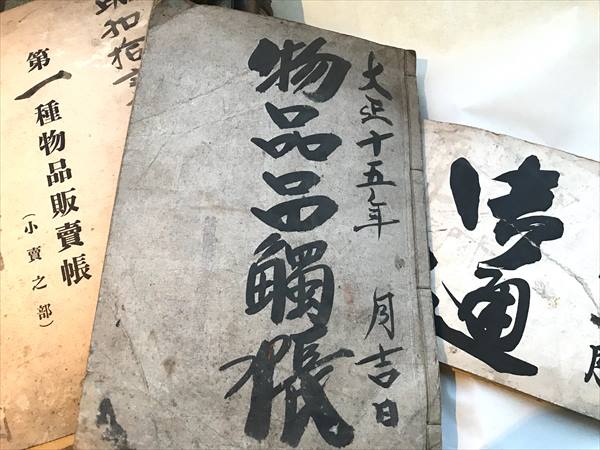 御通
大正十五年 月吉日
物品品觸帳
昭和拾
第一種物品販賣帳
(小賣之部)